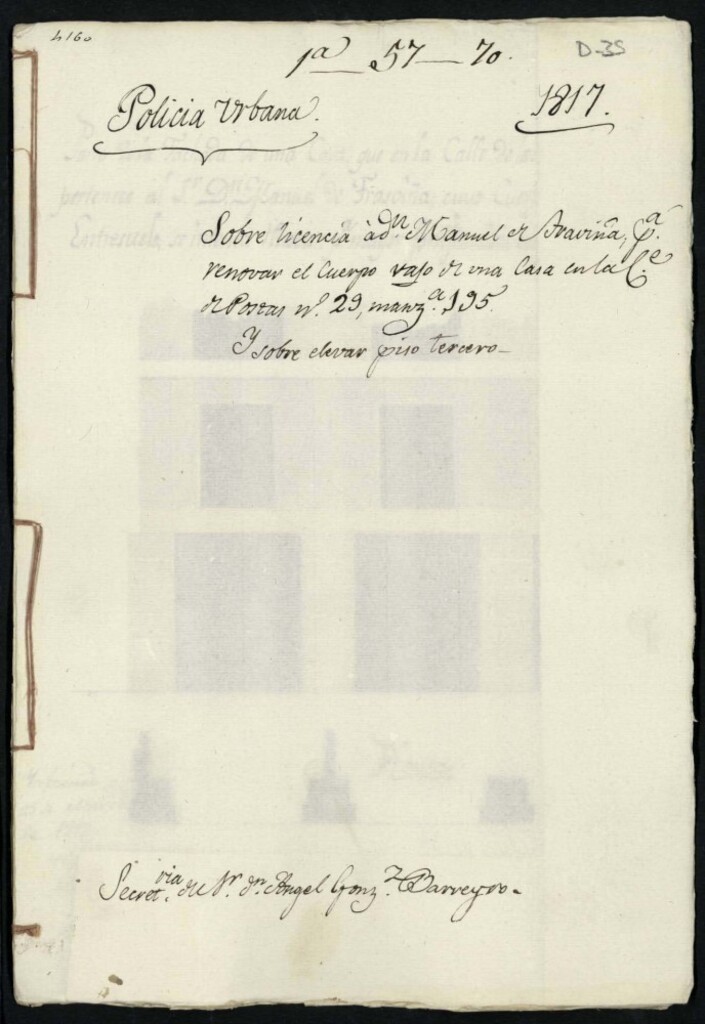 4160
1ª 57—70.
D-35
Policia Urbana.
1817.
Sobre licencia à dn. Manuel de Fraviña, pª.
renovar el Cuerpo vajo de una Casa en la Ce.
de Postas nº. 29, manzª. 195.
Y sobre elevar piso tercero—
Secretvia. de Sr. dn. Angel Gonzz. Barreyro.